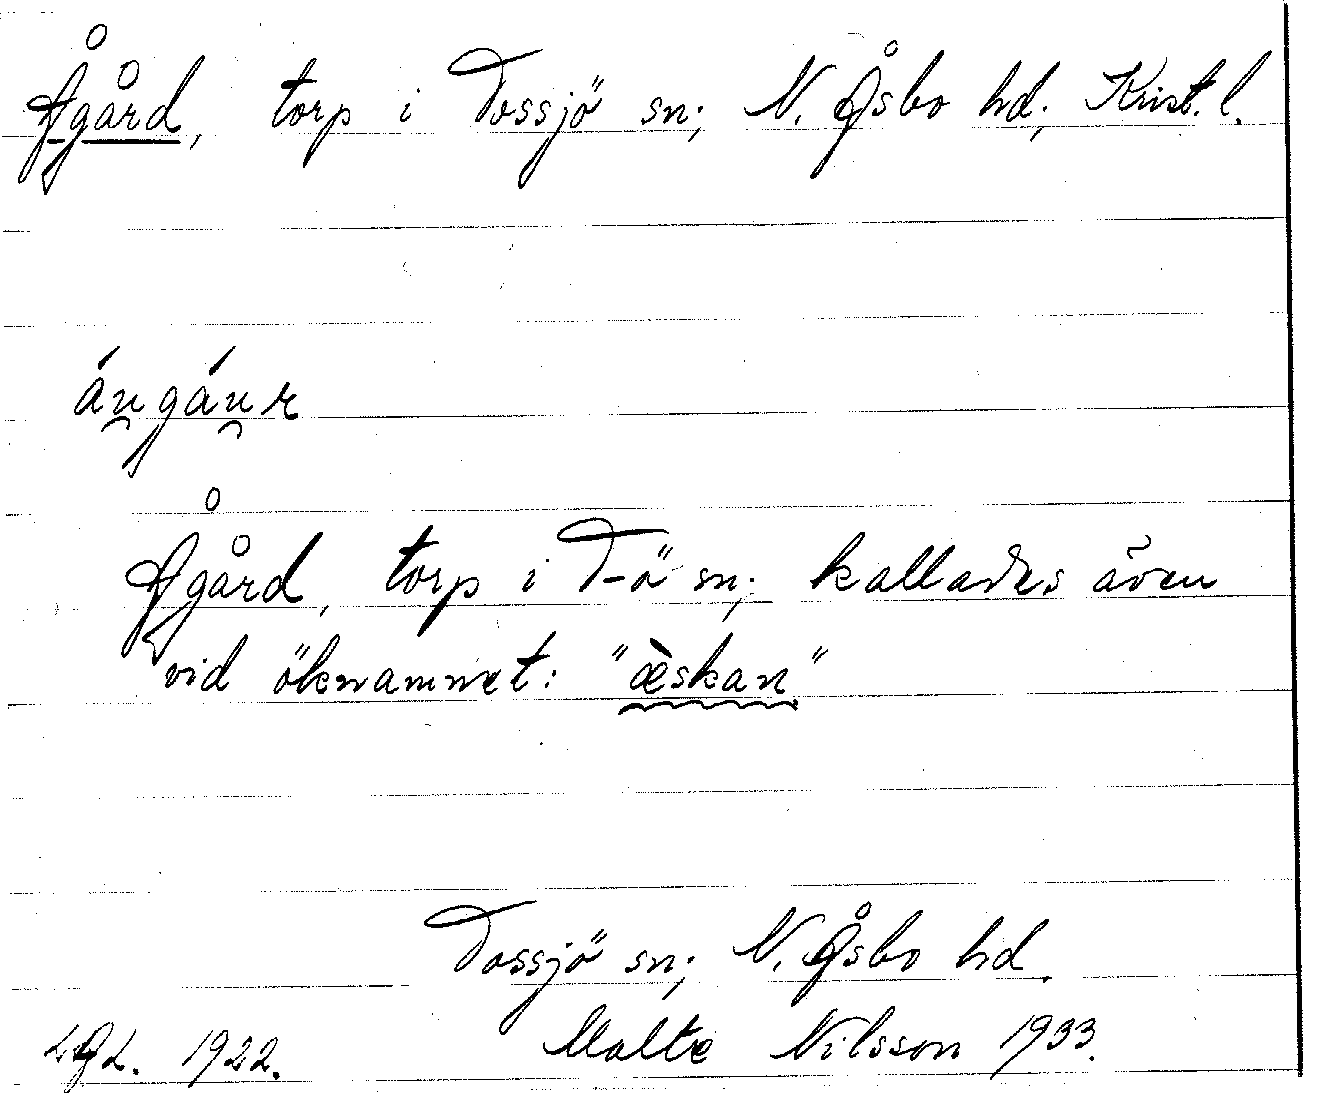 Ågård, torp i Tossjö sn; N. Åsbo hd; Krist. l.
áu̯gáu̯r
Ågård, torp i T-ö sn; kallades även
vid öknamnet: "æ̀skan"
Tossjö sn; N. Åsbo hd.
Malte Nilsson 1933.
LGL. 1922.